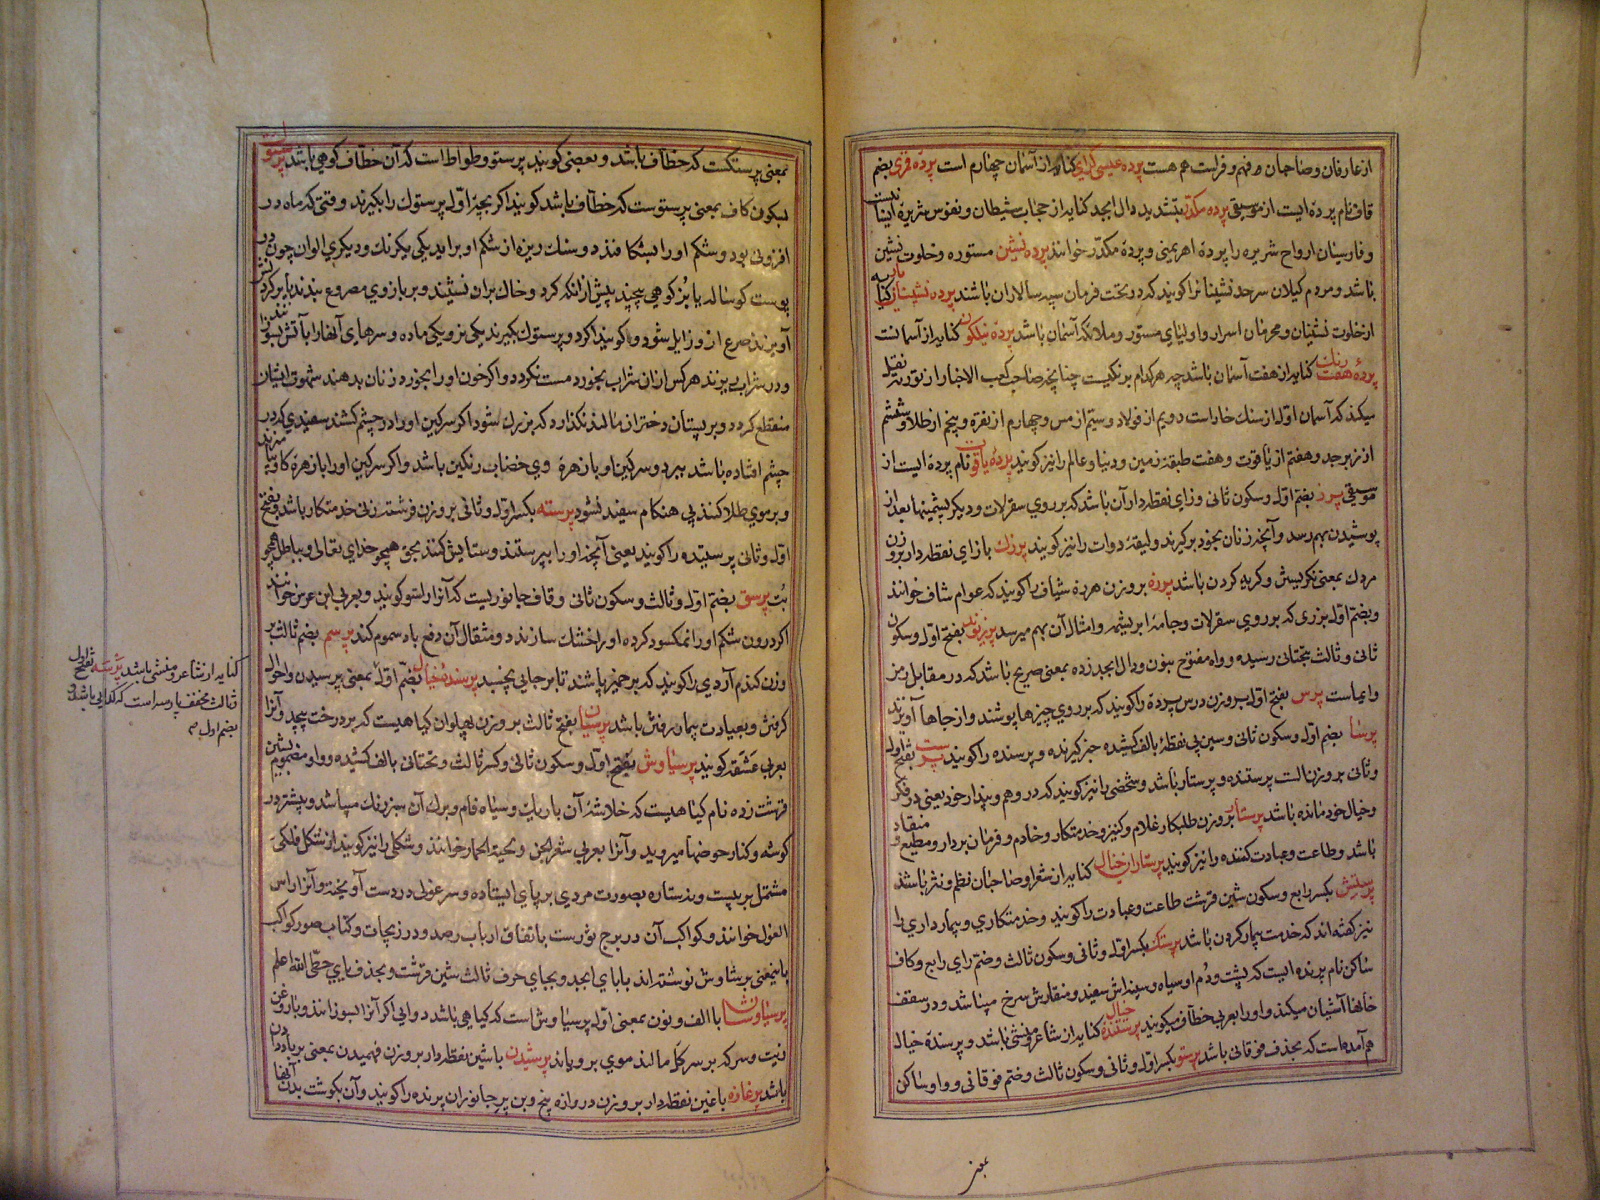 از عارفان و صاحبان فهم و فراست هم هست پرده عیسی گرای کنایه از آسمان چهارم است پرده قمری بضم
قاف نام پرده ایست از موسیقی پرده مکدر بتشدید دال ابجد کنایه از حجاب شیطان و نفوس شریره انسانیست
و فارسیان ارواح شریره را پردۀ اهریمنی و پردۀ مکدر خوانند پرده نشین مستوره و خلوت نشین
باشد و مردم کیلان سرحد نشینانرا کویند که در تحت فرمان سپه سالاران باشند پرده نشینان کنایه
از خلوت نشینان و محرمان اسرار و اولیای مستور و ملائکه آسمان باشد پردۀ نیلکون کنایه از آسمانست
پردۀ هفت رنک کنایه از هفت آسمان باشد چه هر کدام برنکیست چنانچه صاحب کعب الاحبار از توریة نقل
میکند که آسمان اول از سنک خاراست دویم از فولاد و سیم از مس و چهارم از نقره و پنجم از طلا و ششم
از زبرجد و هفتم از یاقوت و هفت طبقۀ زمین و دنیا و عالم را نیز کویند پردۀ یاقوت نام پردۀ ایست از
موسیقی پرز بضم اول و سکون ثانی و زای نقطه دار آن باشد که بر روی سقرلات و دیکر پشمینها بعد از
پوشیدن بهم رسد و آنچه زنان بخود برکیرند و لیقۀ دوات را نیز کویند پرزک بازای نقطه دار بروزن
مردک بمعنی نکریستن و کریه کردن باشد پرزه بروزن هرزه شیاف را کویند که عوام شاف خوانند
و بضم اول پرزی که بر روی سقرلات و جامۀ ابریشم و امثال آن بهم میرسد بفتح اول و سکون
ثانی و ثالث بتحتانی رسیده و واو مفتوح بنون و دال ابجد زده بمعنی صریح باشد که در مقابل رمز
و ایماست پرس بفتح اول بروزن درس پرده را کویند که بر روی چیزها پوشند و از جاها آویزند
پرسا بضم اول و سکون ثانی و سین بی نقطه بالف کشیده خبر کیرنده و پرسنده را کویند پرست بفتح اول
و ثانی بروزن الست پرستنده و پرستار باشد و شخصی را نیز کویند که در وهم و پندار خود یعنی در فکر
و خیال خود مانده باشد پرستار بروزن طلبکار غلام و کنیز و خدمتکار و خادم و فرمان بردار و مطیع و منقاد
باشد و طاعت و عبادت کننده را نیز کویند پرستاران خیال کنایه از شعرا و صاحبان نظم و نثر باشد
پرستش بکسر رابع و سکون شین قرشت طاعت و عبادت را کویند و خدمتکاری و بیمارداری را
نیز کفته اند که خدمت بیمار کردن باشد پرستک بکسر اول و ثانی و سکون ثالث و ضم رای رابع و کاف
ساکن نام پرنده ایست که پشت و دم او سیاه و سینه اش سفید و منقارش سرخ میباشد و در سقف
خانها آشیان میکند و او را بعربی خطاف میکویند پرستندۀ خیال کنایه از شاعر و منشی باشد و پرسندۀ خیال
هم آمده است که بحذف فوقانی باشد پرستو بکسر اول و ثانی و سکون ثالث و ضم فوقانی و واو ساکن
بمعنی پرستکست که خطاف باشد و بعضی کویند پرستو وطواط است که آن خطاف کوهی باشد پرستوک
بسکون کاف بمعنی پرستوست که خطاف باشد کویند اکر بچۀ اول پرستوک را بکیرند وقتی که ماه در
افزونی بود و شکم او را بشکافند دو سنک ریزه از شکم او براید یکی یکرنک و دیکری الوان چون در
پوست کوساله یا بز کوهی پیچند پیش از آنکه کرد و خاک بران نشیند و بر بازوی مصروع بندند یا بر کردنش
آویزند صرع ازو زایل شود و کویند اکر دو پرستوک بکیرند یکی نر و یکی ماده و سرهای آنها را بآتش بسوزانند
و در شراب ریزند هر کس ازان شراب بخورد مست نکردد و اکر خون او را بخورد زنان بدهند شهوت ایشان
منقطع کردد و بر پستان دختران مالند نکذارد که بزرک شود اکر سرکین او را در چشم کشند سفیدی که در
چشم افتاده باشد ببرد و سرکین او با زهرۀ وی خضاب رنکین باشد و اکر سرکین او را با زهرۀ کاو بیامیزند
و بر موی طلا کنند بی هنکام سفید نشود پرسته بکسر اول و ثانی بروزن فرشته زنی خدمتکار باشد و بفتح
اول و ثانی پرستیده را کویند یعنی آنچه او را بپرستند و ستایش کنند بحق همچو خدای تعالی و بباطل همچو
بت پرسق بضم اول و ثالث و سکون ثانی و قاف جانوریست که آنرا راسو کویند و بعربی ابن عرس خوانند
اکر درون شکم او را نمکسود کرده او را خشک سازند دو مثقال آن دفع باد سموم کند پرسم بضم ثالث بر
وزن کندم آردی را کویند که بر خمیر پاشند تا بر جایی نچسبد پرسندۀ خیال بضم اول بمعنی پرسیدن و احوال
کرفتن و بعیادت بیمار رفتن باشد پرسیان بفتح ثالث بروزن پهلوان کیاهیست که بر درخت پیچد و آنرا
بعربی عشقه کویند پرسیاوش بفتح اول و سکون ثانی و کسر ثالث و تحتانی بالف کشیده و واو مضموم بشین
قرشت زده نام کیاهیست که خلاشۀ آن باریک و سیاه فام و برک آن سبزرنک میباشد و بیشتر در
کوشه و کنار حوضها میروید و آنرا بعربی شعر الجن و لحیة الحمار خوانند و شکلی را نیز کویند از شکل فلکی
مشتمل بر بیست و ستاره بصورت مردی بر پای ایستاده و سر غولی در دست آویخته و آنرا راس
الغول خوانند و کواکب آن در برج ثورست باتفاق ارباب رصد و در زیجات و کتاب صور کواکب
باینمعنی برساوش نوشته اند با بای ابجد و بجای حرف ثالث شین قرشت و بحذف یای حطی الله اعلم
پرسیاوشان با الف و نون بمعنی اول پرسیاوش است که کیاهی باشد دوایی اکر آنرا بسوزانند و با روغن
زیت و سرکه بر سر کل مالند موی برویاند پرشیدن باشین نقطه دار بروزن فهمیدن بمعنی بر باد دادن
باشد پرغازه باغین نقطه دار بروزن دروازه بیخ و بن پر جانوران پرنده را کویند و آن بکوشت بدن آنها
کنایه از شاعر و منشی باشد پرسه بفتح اول
و ثالث مخفف پارسه است که کدایی باشد و
بضم اول ص
بمعنی